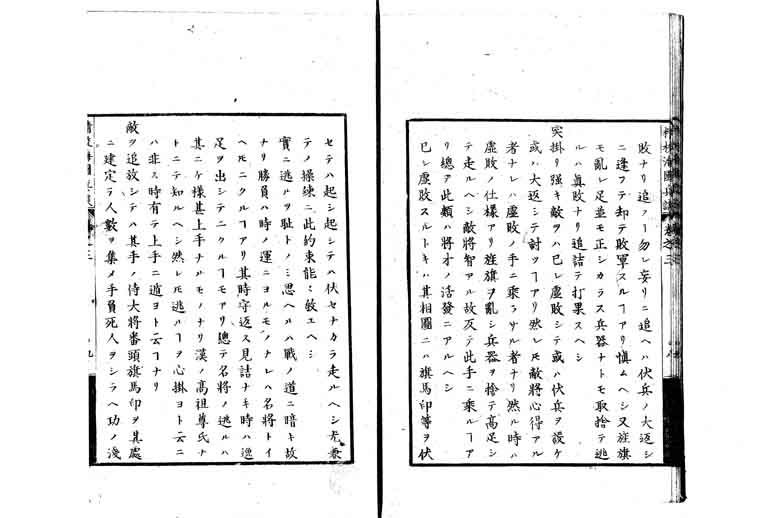 敗ナリ追フヿ勿レ妄リニ追ヘハ伏兵ノ大返シ
ニ逢フテ却テ敗軍スルヿアリ愼ムヘシ又旌旗
モ亂レ足並モ正シカラス兵器ナトモ取捨テ逃
ルハ眞敗ナリ追詰テ打果スヘシ
突掛リ强キ敵ヲハ已レ虛敗シテ或ハ伏兵ヲ設ケ
或ハ大返シテ討ツヿアリ然レ𪜈敵將心得アル
者ナレハ虛敗ノ手ニ乘ラサル者ナリ然ル時ハ
虛敗ノ仕樣アリ旌旗ヲ亂シ兵器ヲ捨テ高足シ
テ走ルヘシ敵將智アル故反テ此手ニ乘ルヿア
リ總テ此類ハ將才ノ活發ニアルヘシ
已レ虛敗スルトキハ其相圖ニハ旗馬印等ヲ伏
セテハ起シ起シテハ伏セナカラ走ルヘシ尤兼
テノ操練ニ此約束能々敎ユヘシ
實ニ逃ルヲ恥トノミ思ヘルハ戰ノ道ニ暗キ故
ナリ勝負ハ時ノ運ニヨルモノナレハ名將トイ
ヘ𪜈ニクルヿアリ其時守返ス見詰ナキ時ハ逸
足ヲ出シテニクルヿモアリ總テ名將ノ逃ルハ
其ニケ樣甚上手ナルモノナリ漢ノ高祖尊氏ナ
トニテ知ルヘシ然レ𪜈逃ルヿヲ心掛ヨト云ニ
ハ非ス時有テ上手ニ遁ヨト云ヿナリ
敵ヲ追放シテハ其手ノ侍大將番頭旗馬印ヲ其處
ニ建定テ人數ヲ集メ手負死人ヲシラヘ功ノ淺